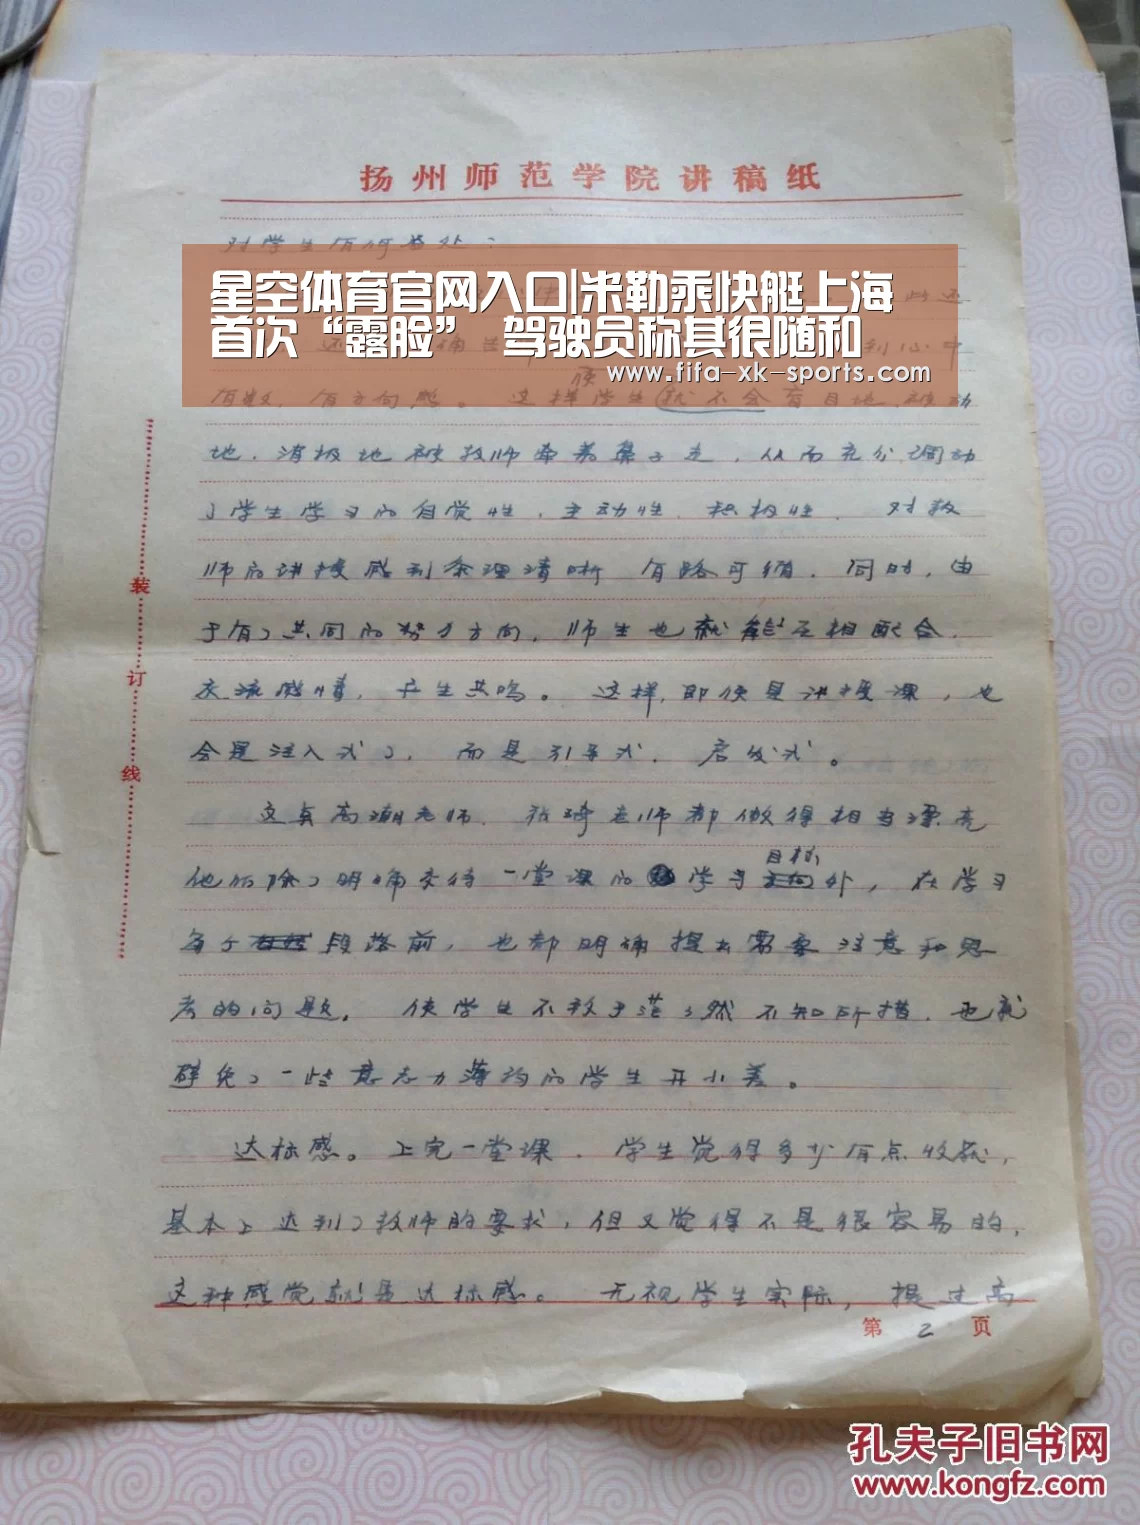 扬州师范学院讲稿纸
对学生有何益处：
星空体育官网入口|米勒乘快艇上海
首次“露脸” 驾驶员称其很随和
www.fifa-xk-sports.com
有数，有方向感。这样学生就不会盲目地、被动
地、消极地被教师牵着鼻子走，从而充分调动
了学生学习的自觉性、主动性、积极性。对教
师的讲授感到条理清晰 有路可循。同时，由
于有了共同的努力方向，师生也就能互相配合，
交流感情，产生共鸣。这样，即使是讲授课，也
会是注入式了，而是引导式、启发式。
高潮老师、 老师都做得相当漂亮
他们除了明确交待一堂课的学习目标外，在学习
每个段落前，也都明确提出需要注意和思
考的问题，使学生不致于茫茫然不知所措，也就
避免了一些意志力薄弱的学生开小差。
达标感。上完一堂课，学生觉得多少有点收获，
基本上达到了教师的要求，但又觉得不是很容易的，
这种感觉就是达标感。无视学生实际，提过高
第 2 页
装
订
线
孔夫子旧书网
www.kongfz.com